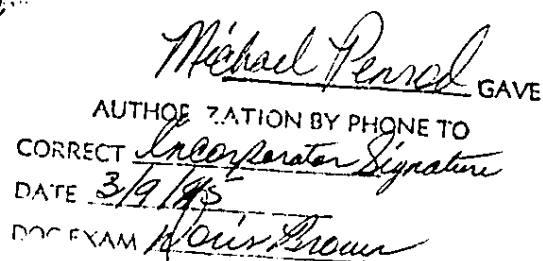 Michael Penrod GAVE
AUTHOR ZATION BY PHONE TO
CORRECT Incorporator Signature
DATE 3/9/
DOC EXAM Brown